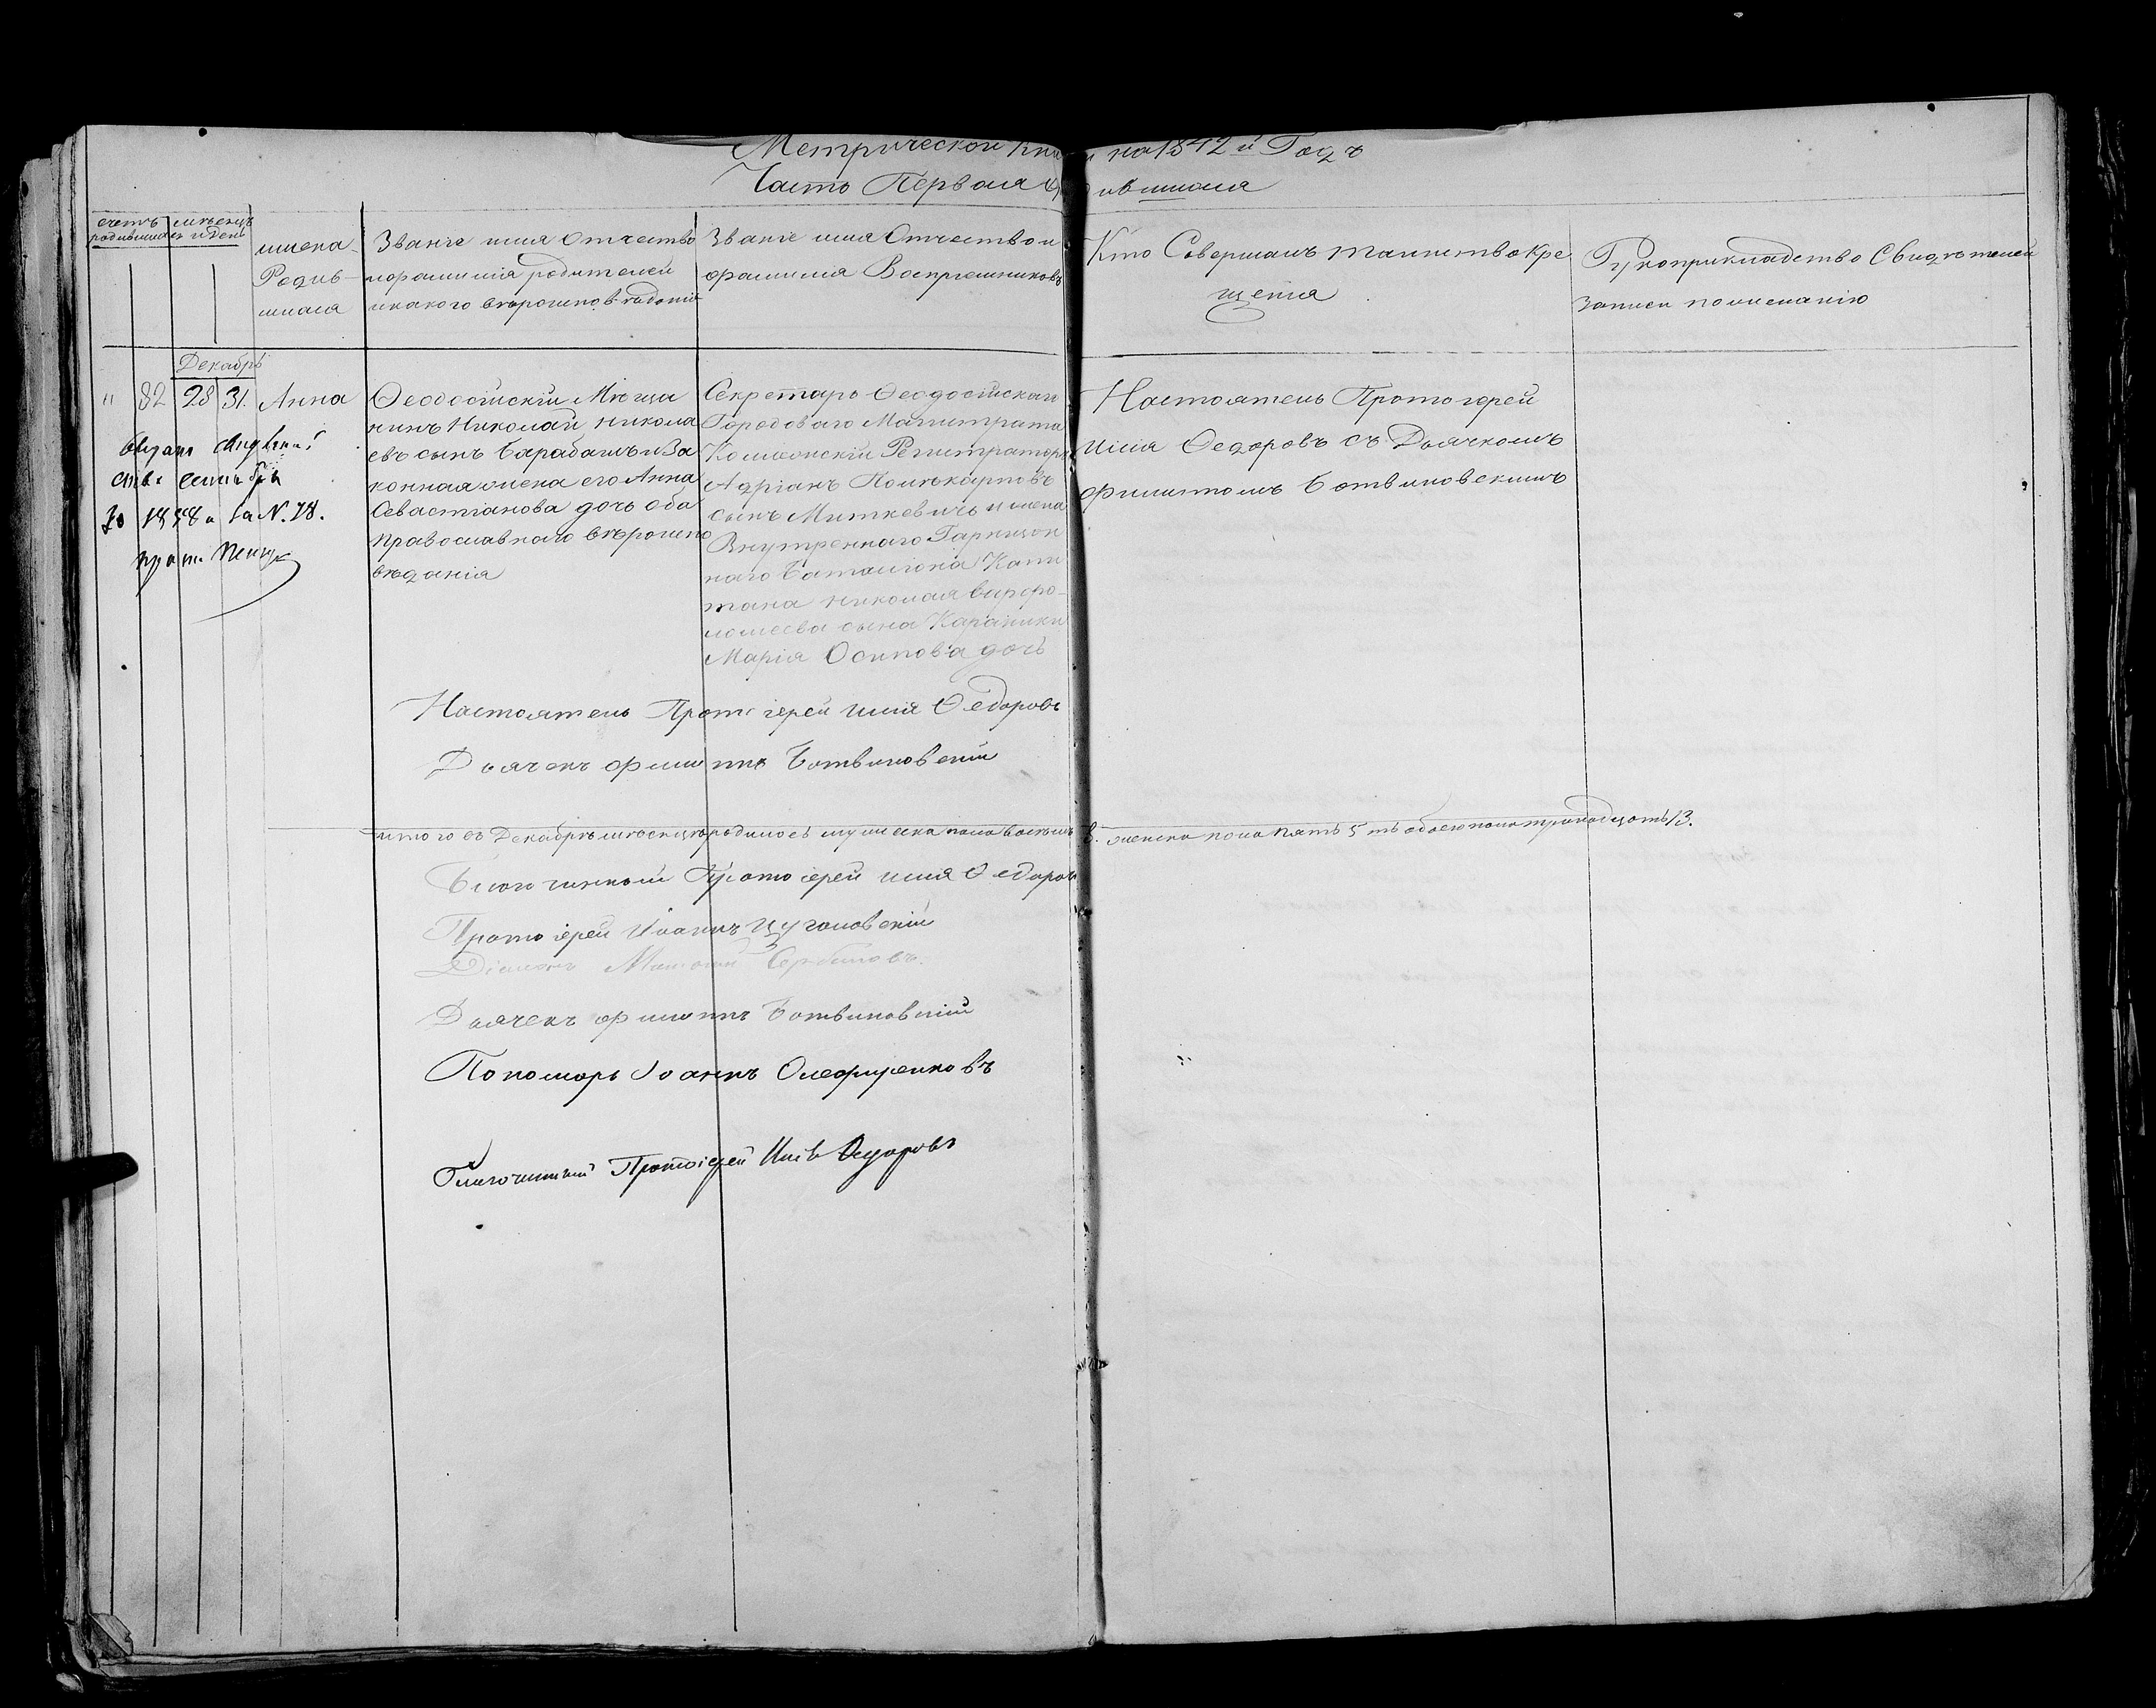 Метрической Кни и на 1842 й Годъ
Часть Первая О ившихся
счетъ родившихся
мѣсецъ и день
имена
Родив-
шихся
Званіе имя Отчество
и фамилія родителей
и какого вѣроисповѣданія
Званіе имя Отчество и
фамилія Воспріемниковъ
Кто Совершалъ таинство Кре
щенія
Рукоприкладство Свидѣтелей
записи по желанію
Декабрь
" 82 28 31. Анна
Ѳеодосійскій Мѣща
нинъ Николай Никола
евъ сынъ Барабашъ и За
конная жена его Анна
Севастіанова дочь оба
православнаго вѣроиспо
вѣданія
Секретарь Ѳеодосійскаго
Городоваго Магистрата
Коллежскій Регистраторъ
Адріанъ Поликарповъ
сынъ Миткевичъ и жена
Внутренняго Гарнизон
наго Баталіона Капи
тана Николая Варфо-
ломеева сына Караники
Марія Осипова дочь
Настоятель Протоіерей
Илія Ѳедоровъ съ Дьячкомъ
Филиппомъ Ботвиновскимъ
сентября
30 1858 за N. 78.
Настоятель Протоіерей Илія Ѳедоровъ
Дьячекъ Филиппъ Ботвиновскій
итого въ Декабрѣ мѣсецѣ родилось мужеска пола восемь 8. женска пола пять 5 ть обоего пола тринадцать 13.
Благочинный Протоіерей Илія Ѳедоровъ
Протоіерей Иоаннъ Цугановскій
Діаконъ Сербиновъ.
Дьячекъ Филиппъ Ботвиновскій
Пономарь Іоаннъ Олефиренковъ
Благочинный Протоіерей Илія Ѳедоровъ